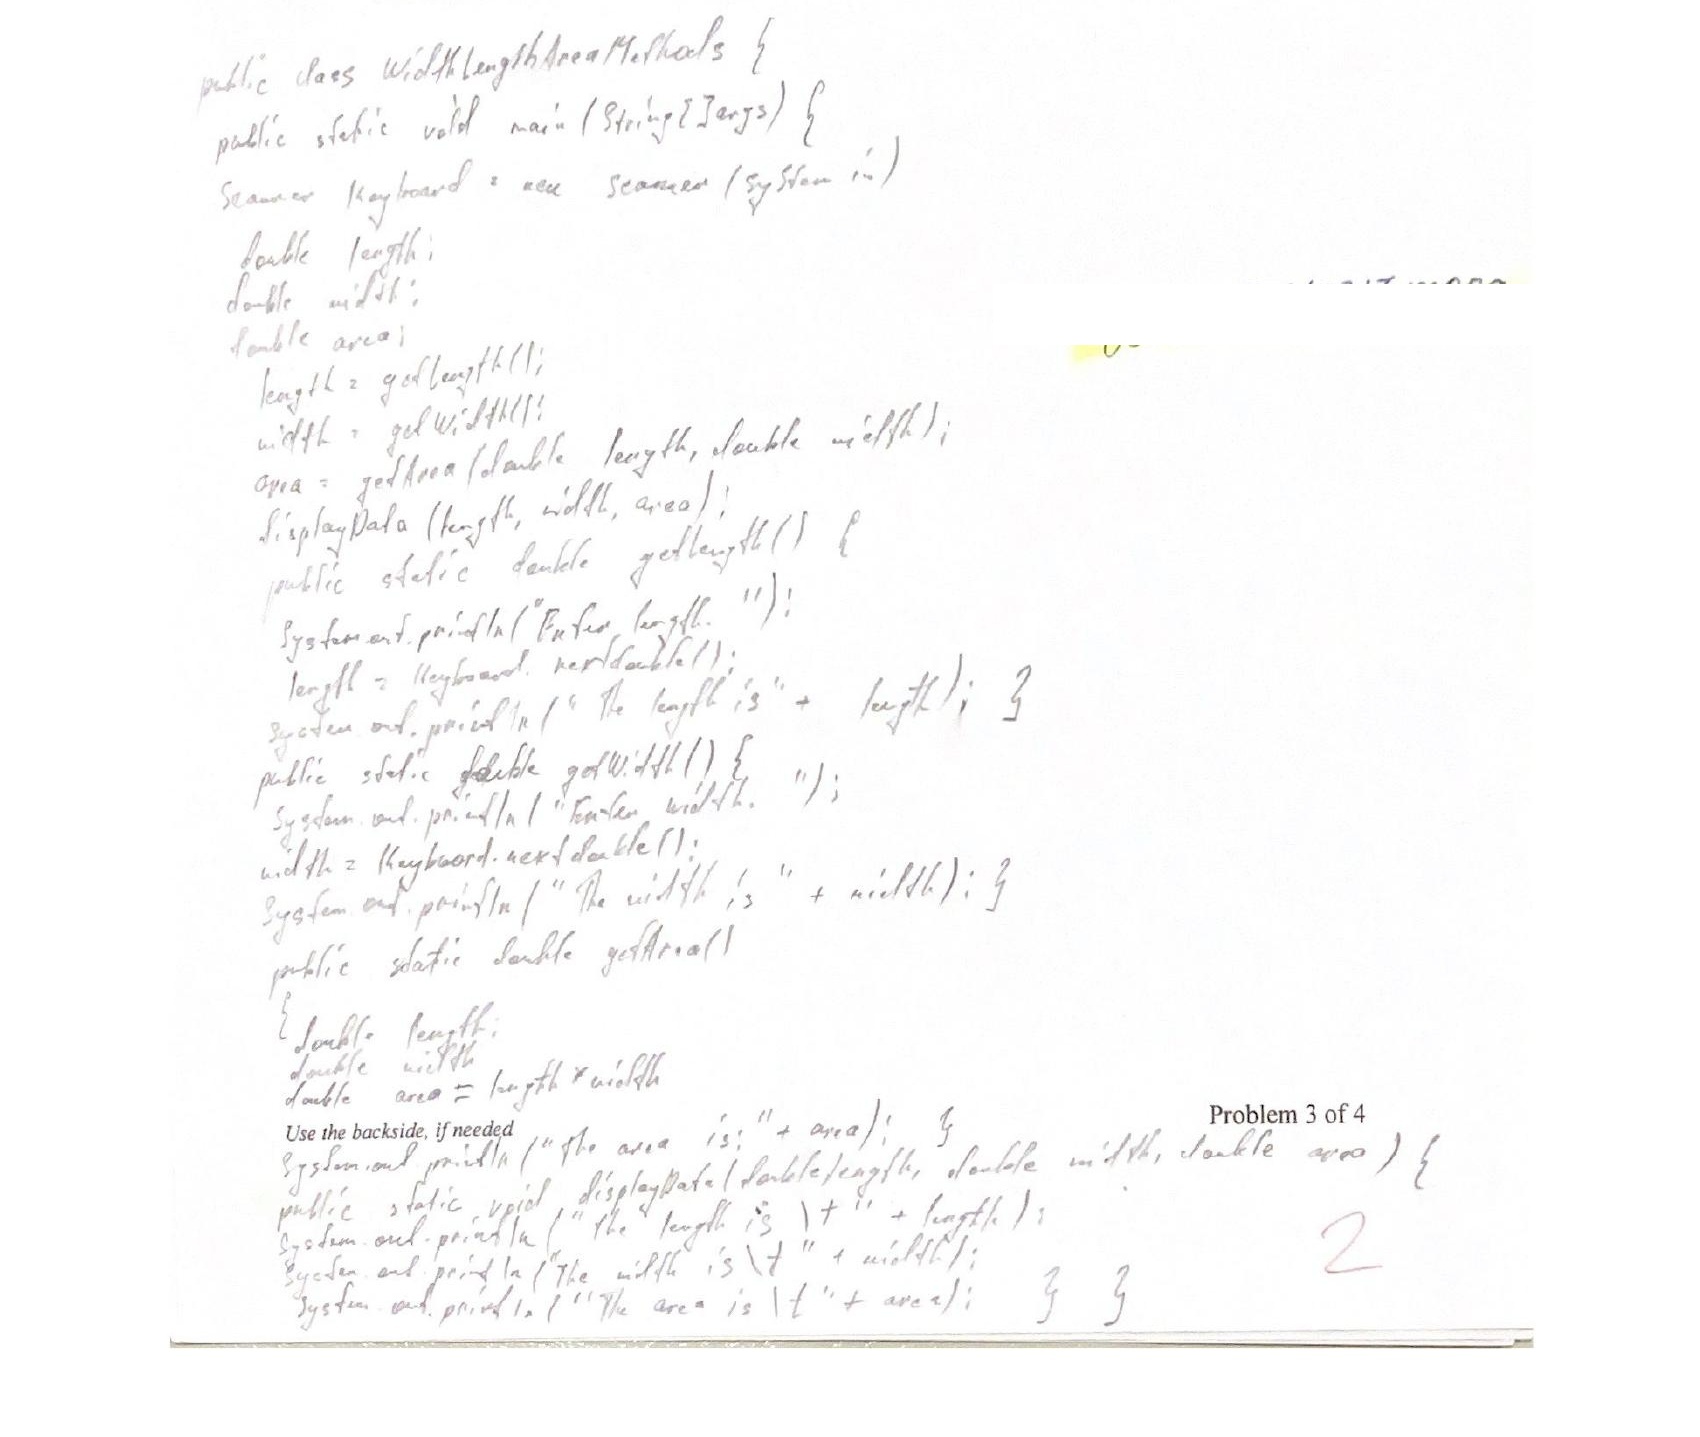 public class WidthLengthAreaMethods {
public static void main (String[]args) {
Scanner Keyboard = new Scanner (System in)
double length;
double width;
double area;
length = getLength();
width = getWidth();
area = getArea (double length, double width);
displayData (length, width, area);
public static double getLength() {
System.out.println("Enter length. ");
length = Keyboard.nextdouble();
System.out.println ("The length is" + length); }
public static double getWidth() {
System.out.println ("Enter width. ");
width = Keyboard.nextdouble();
System.out.println ("The width is " + width); }
public static double getArea()
{
double length;
double width
double area = length * width
Problem 3 of 4
Use the backside, if needed
System.out println ("The area is:" + area); }
public static void displayData (double length, double width, double area) {
System.out.println ("The length is \t" + length);
System.out.println ("The width is \t" + width);
System.out.println ("The area is \t" + area); } }
2